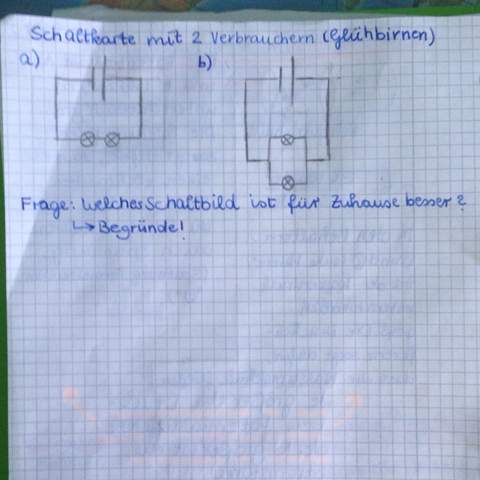 Schaltkarte mit 2 Verbrauchern (Glühbirnen)
a) b)
Frage: Welches Schaltbild ist für Zuhause besser?
↳ Begründe!